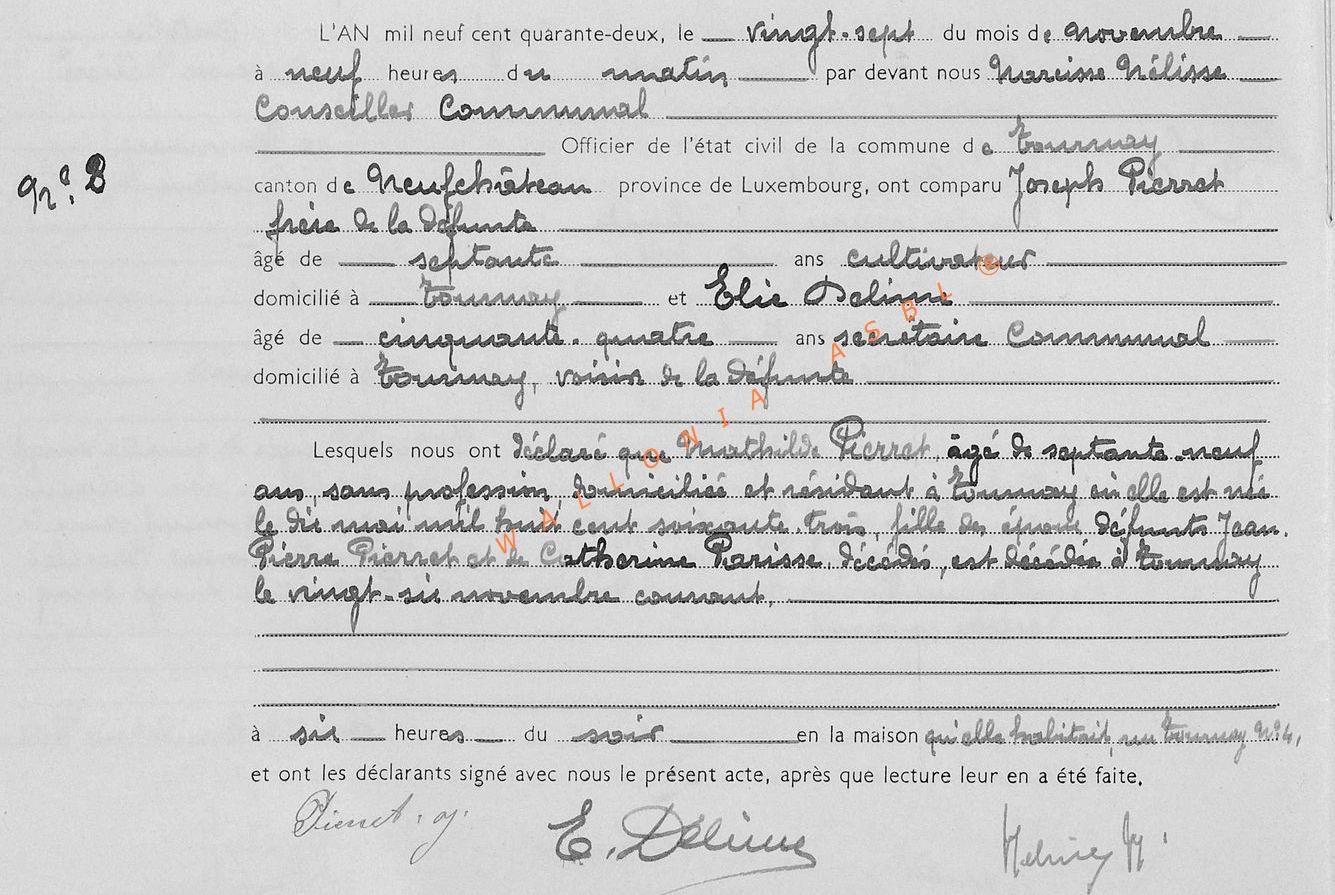 L'AN mil neuf cent quarante-deux, le vingt-sept du mois de novembre
à neuf heures du matin par devant nous Narcisse Nélisse
Conseiller Communal
Officier de l'état civil de la commune de Tournay
N° 8
canton de Neufchâteau province de Luxembourg, ont comparu Joseph Pierret
frère de la défunte
âgé de septante ans cultivateur
domicilié à Tournay et Elie
âgé de cinquante-quatre ans secrétaire Communal
domicilié à Tournay, voisin de la défunte
Lesquels nous ont déclaré que Mathilde Pierret, âgé de septante-neuf
ans, sans profession, domiciliée et résidant à Tournay où elle est née
le dix mai mil huit cent soixante-trois, fille des époux défunts Jean-
Pierre Pierret et de Catherine Parisse, décédés, est décédée à Tournay
le vingt-six novembre courant,
à six heures du soir en la maison qu'elle habitait, Tournay N° 4,
et ont les déclarants signé avec nous le présent acte, après que lecture leur en a été faite.
Pierret. J.
WALLONIA ASBL ©